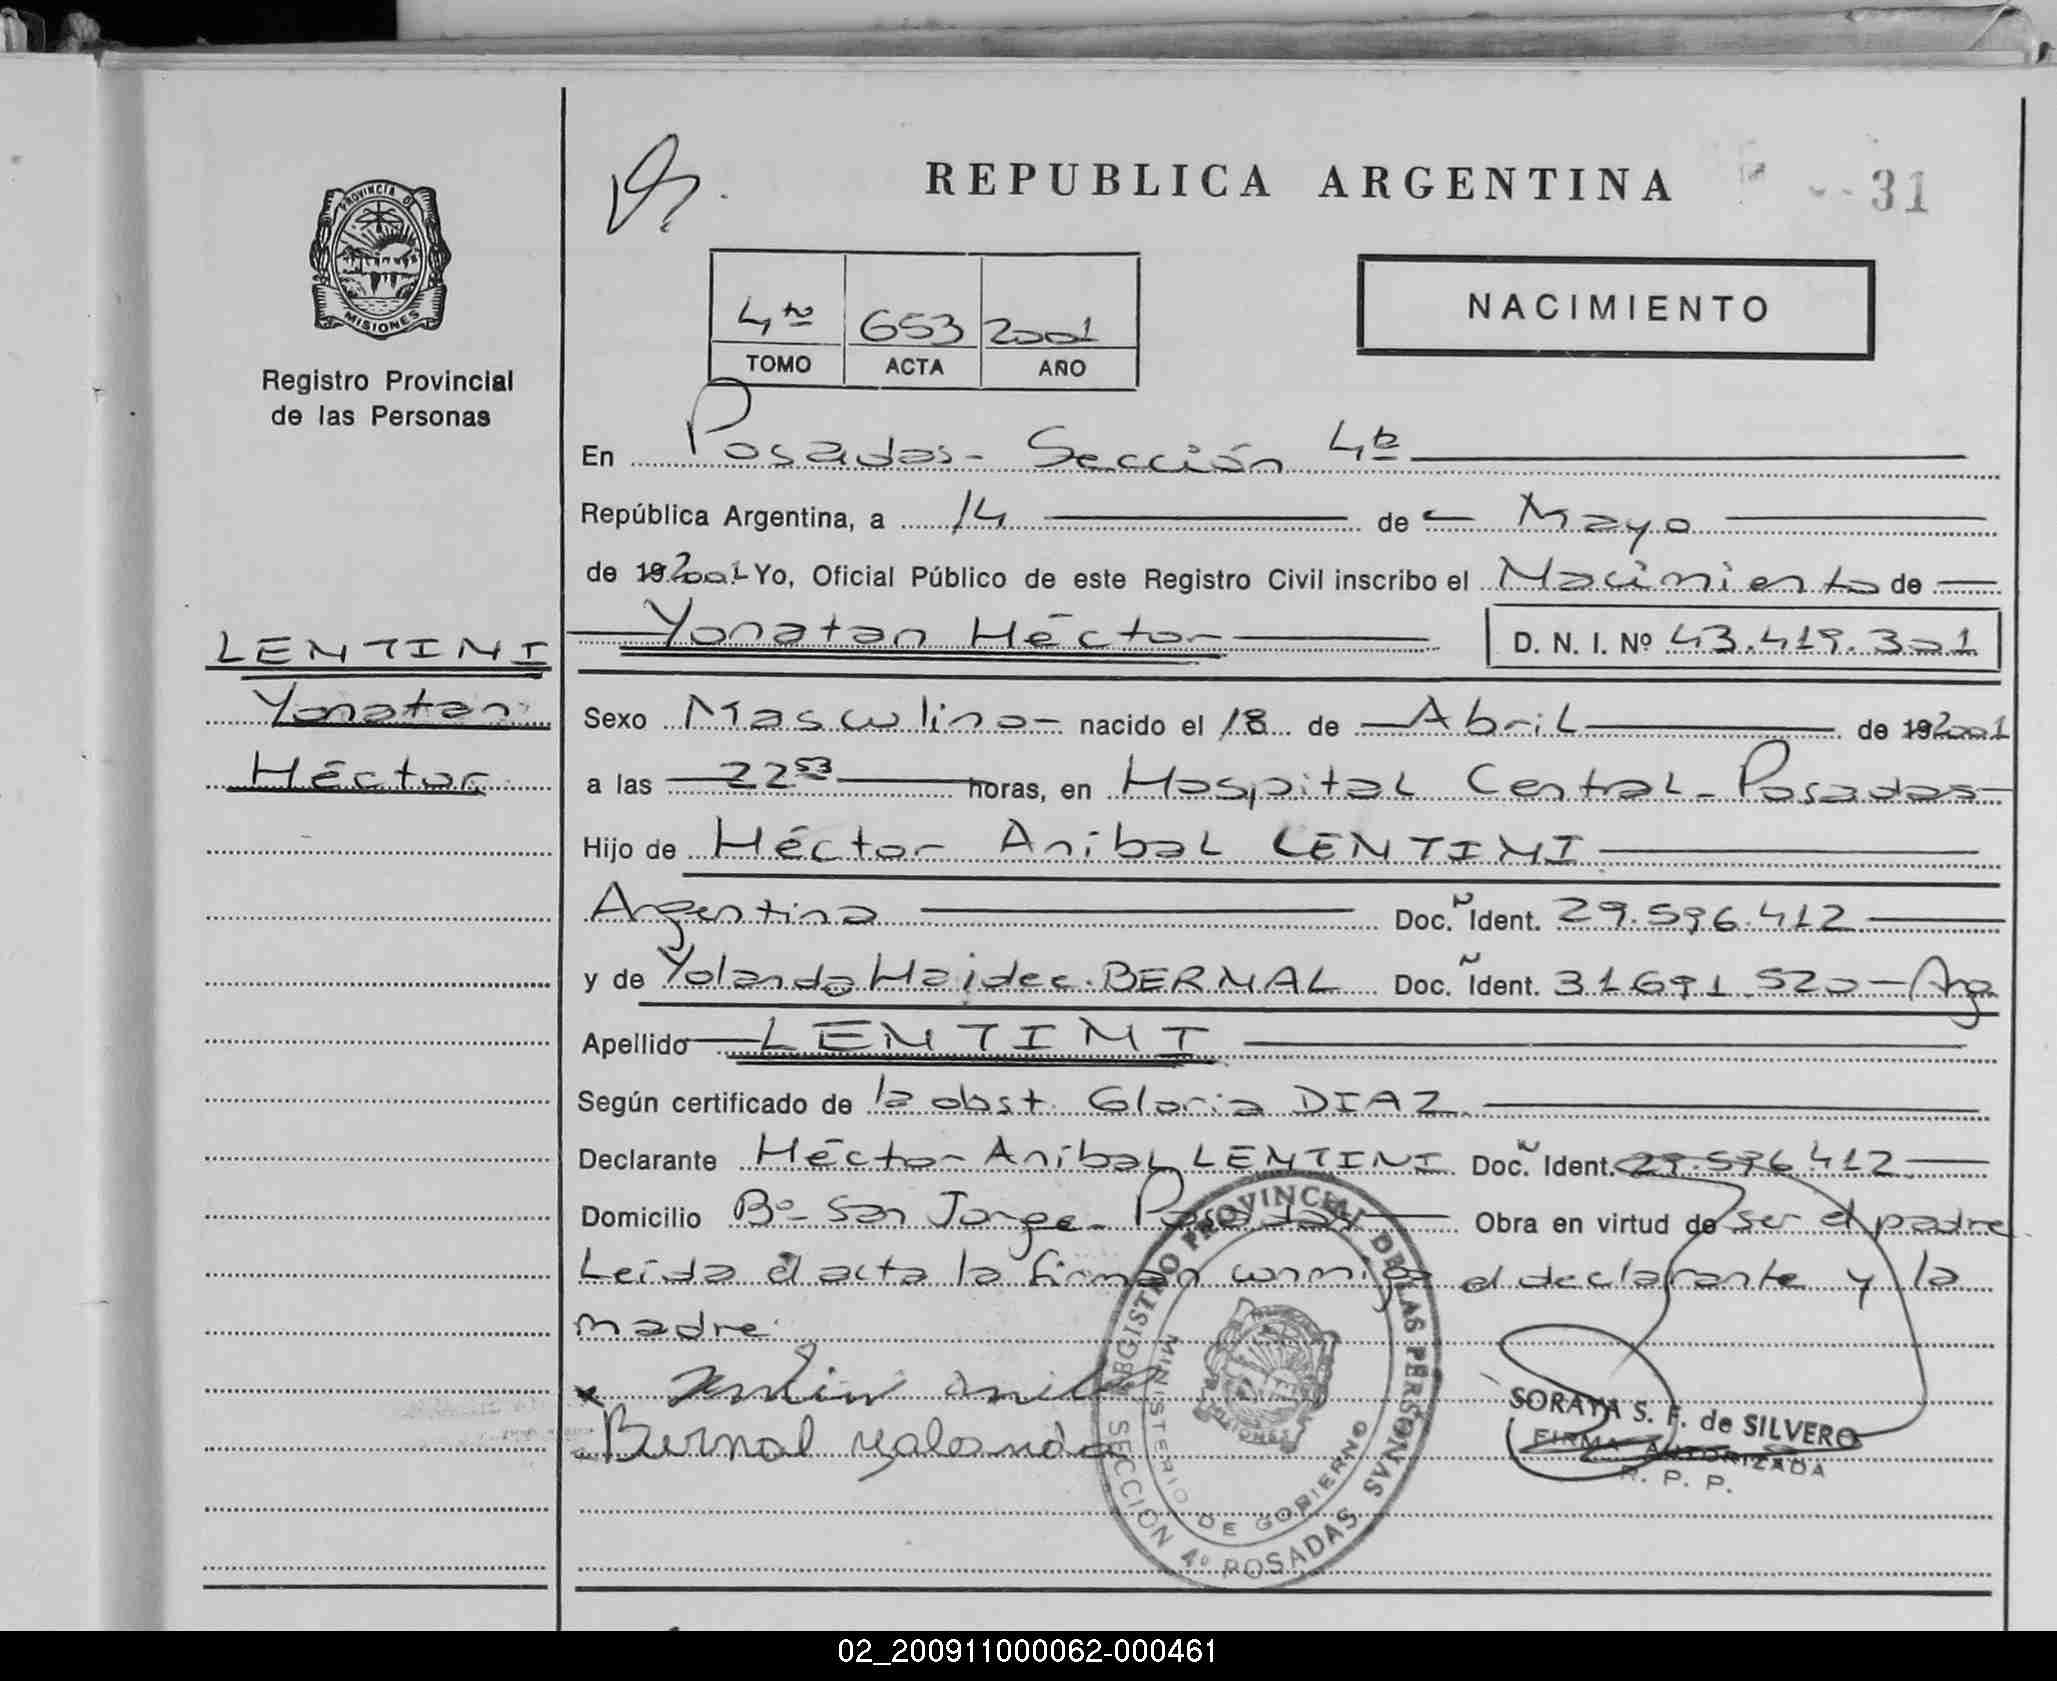 REPUBLICA ARGENTINA
31
PROVINCIA DE
MISIONES
Registro Provincial
de las Personas
NACIMIENTO
4to 653 2001
TOMO ACTA AÑO
En Posadas - Sección 4ta
República Argentina, a 14 de Mayo
de 19 2001 Yo, Oficial Público de este Registro Civil inscribo el Nacimiento de
Yonatan Héctor D. N. I. Nº 43.419.301
LENTINI
Yonatan
Héctor
Sexo Masculino - nacido el 18 de Abril de 19 2001
a las 22 53 horas, en Hospital Central - Posadas -
Hijo de Héctor Aníbal LENTINI
Argentina Doc. Ident. 29.596.412
y de Yolanda Haidee BERNAL Doc. Ident. 31691.520 - Arg
Apellido LENTINI
Según certificado de la obst. Gloria DIAZ
Declarante Héctor Aníbal LENTINI Doc. Ident. 29.596.412
Domicilio Bº San Jorge - Posadas Obra en virtud de ser el padre
Leída el acta la firman conmigo el declarante y la
madre
Bernal yolanda
REGISTRO PROVINCIAL DE LAS PERSONAS
MINISTERIO DE GOBIERNO
SECCIÓN 4º POSADAS
MISIONES
SORAYA S. F. de SILVERO
FIRMA AUTORIZADA
R. P. P.
02_200911000062-000461